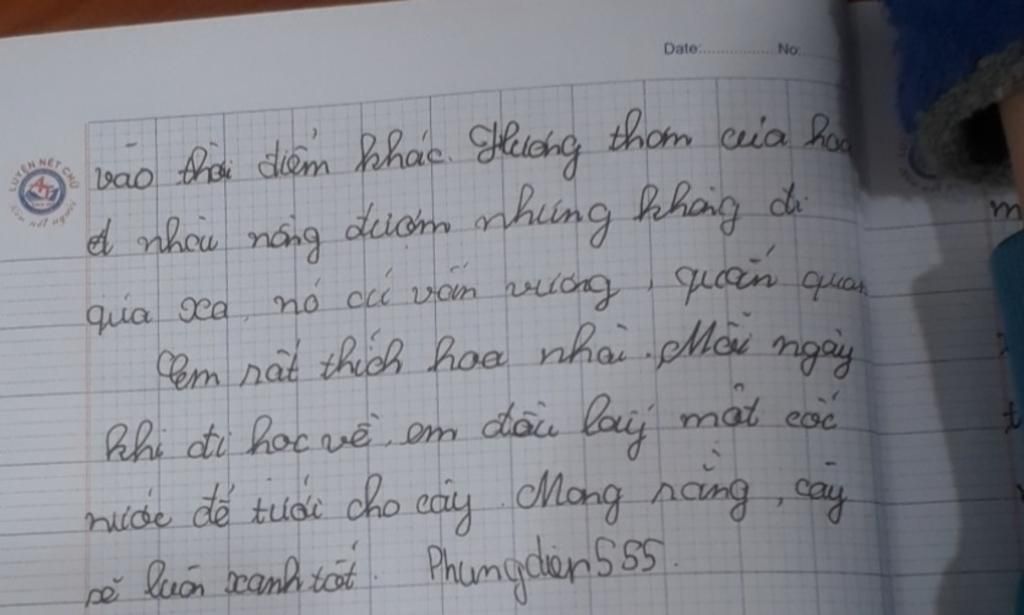 Date:............... No:
LUYỆN NÉT CHỮ
vào thời điểm khác. Hương thơm của hoa
nhài nồng đượm nhưng không đi
quá xa, nó cứ vấn vương, quấn quan
Em rất thích hoa nhài. Mỗi ngày
khi đi học về, em đều lấy một cốc
nước để tưới cho cây. Mong rằng, cây
sẽ luôn xanh tốt. Phungdien555.